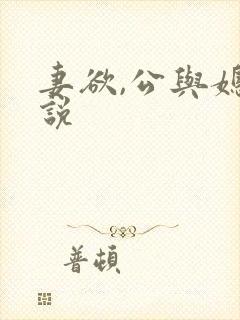 妻欲,公與媳
説
普頓